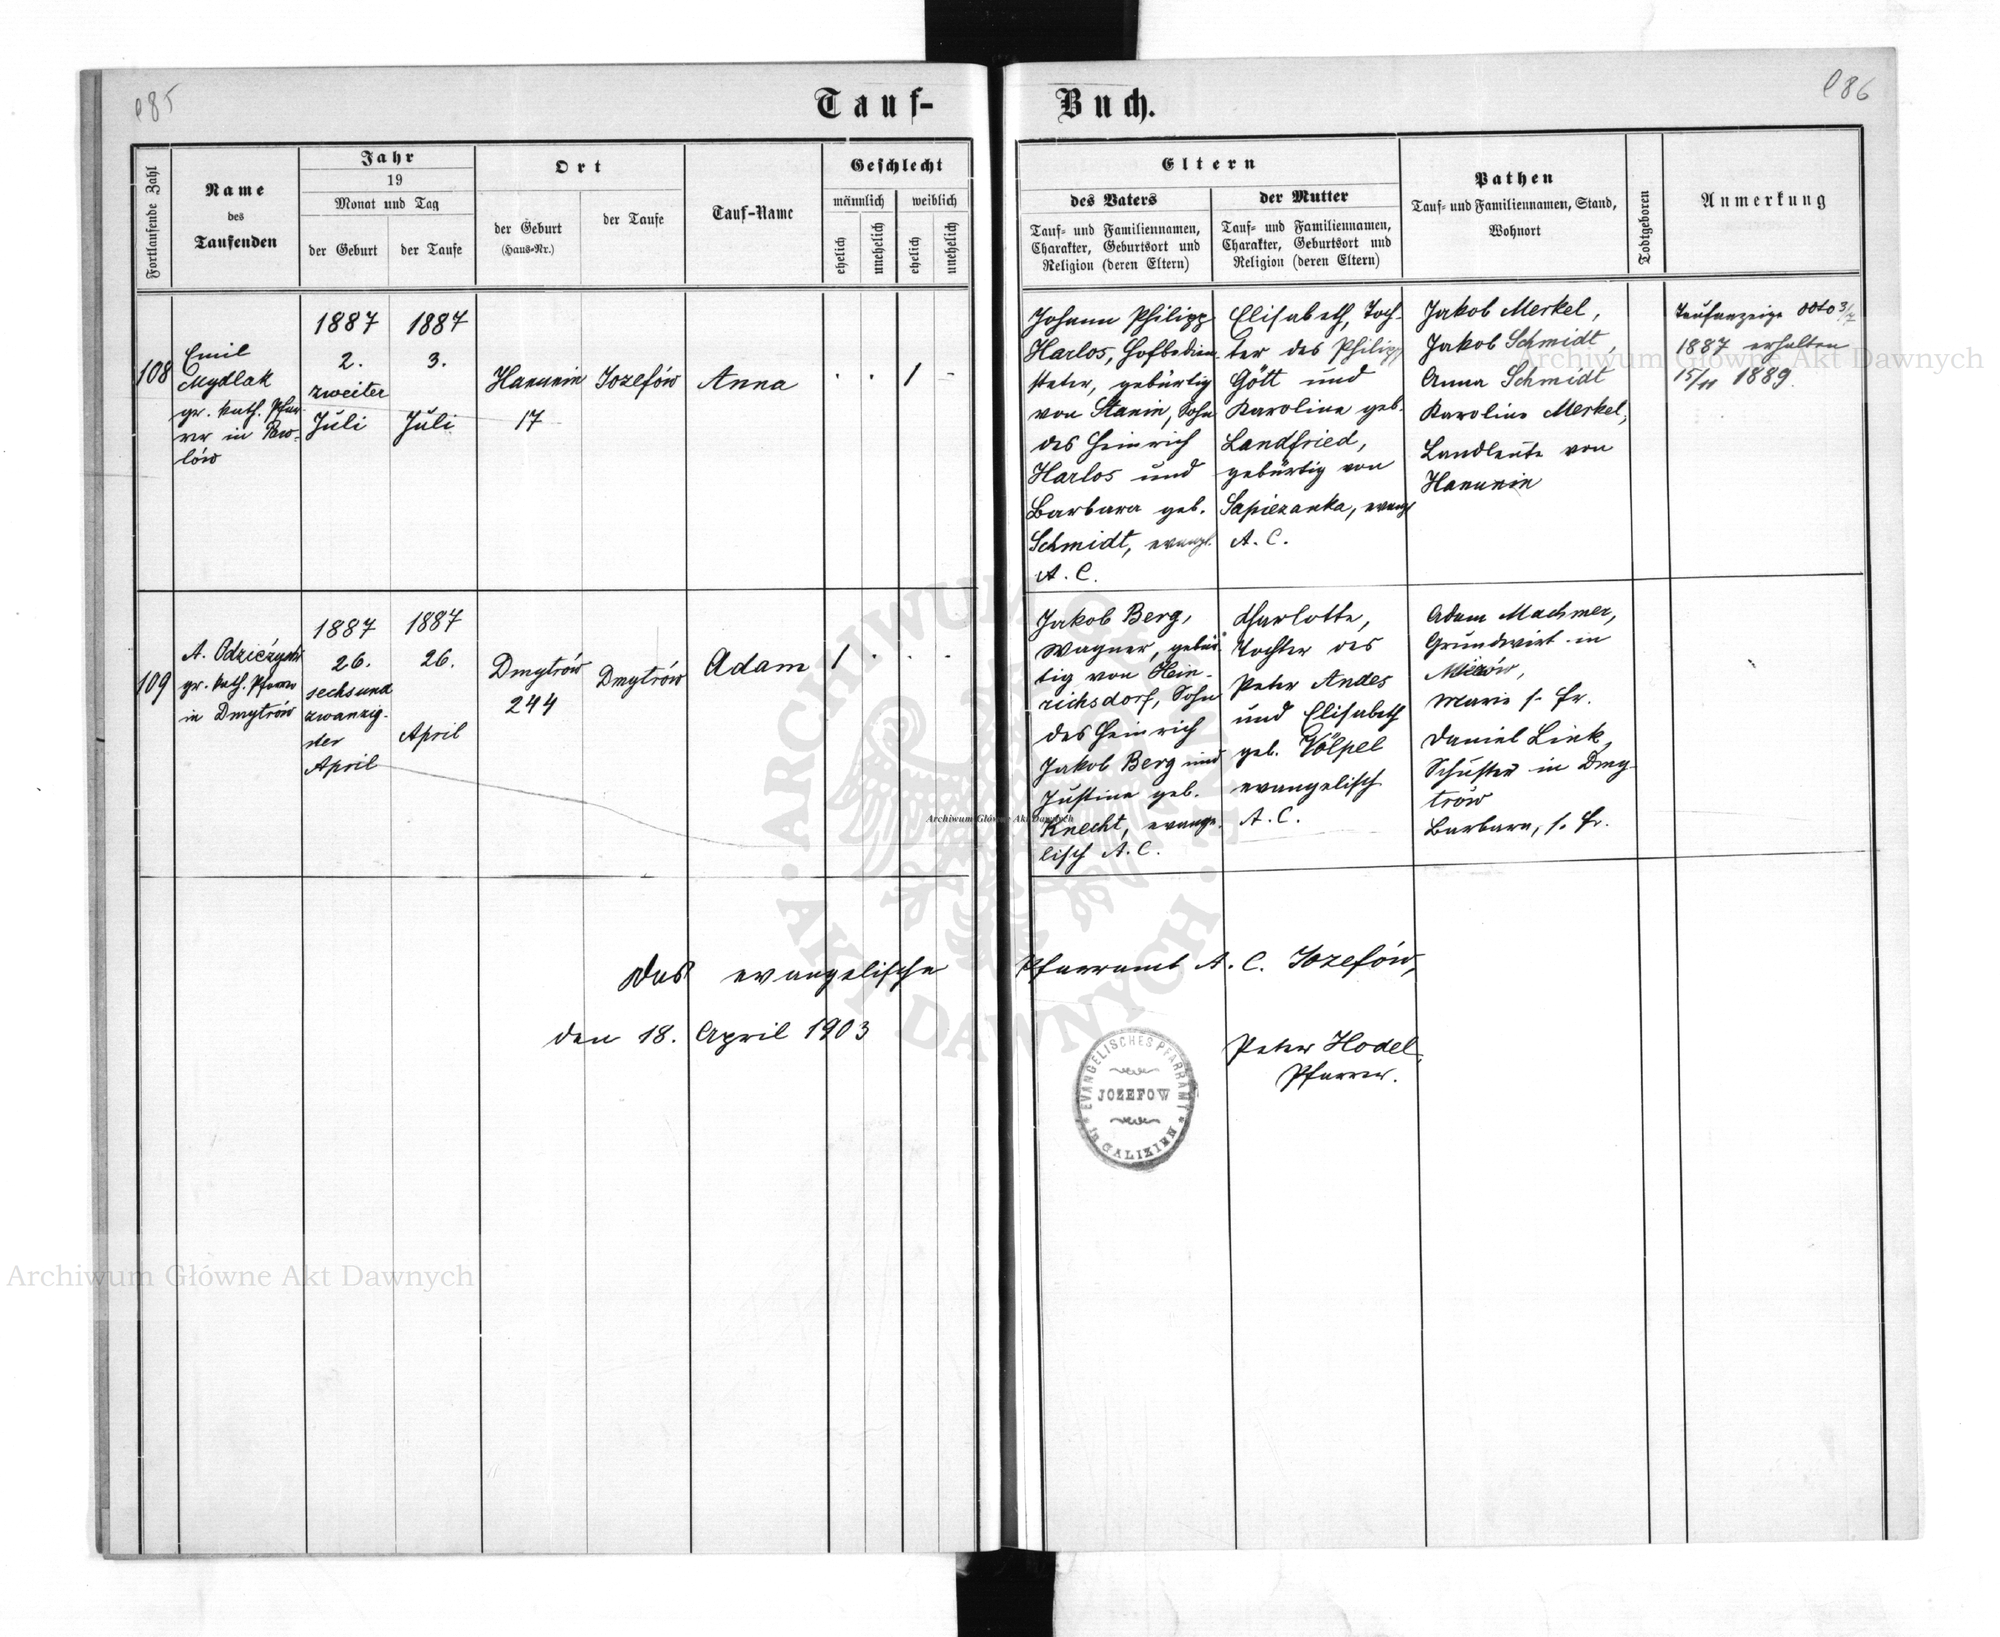 085
086
Tauf-
Buch.
Fortlaufende Zahl
Name
des
Taufenden
Jahr
19
Monat und Tag
der Geburt
der Taufe
Ort
der Geburt
(Haus-Nr.)
der Taufe
Tauf-Name
Geschlecht
männlich
weiblich
ehelich
unehelich
ehelich
unehelich
Eltern
des Vaters
Tauf- und Familiennamen,
Charakter, Geburtsort und
Religion (deren Eltern)
der Mutter
Tauf- und Familiennamen,
Charakter, Geburtsort und
Religion (deren Eltern)
Pathen
Tauf- und Familiennamen, Stand,
Wohnort
Todtgeboren
Anmerkung
108
Emil
Mydlak
gr. kath. Pfar-
rer in Paw-
lów
1887
2.
zweiter
Juli
1887
3.
Juli
Hanunin
17
Jozefów
Anna
. . 1 -
Johann Philipp
Harlos, Hofbedien-
steter, gebürtig
von Stanin, Sohn
des Heinrich
Harlos und
Barbara geb.
Schmidt, evangl.
A. C.
Elisabeth, Toch-
ter des Philipp
Gött und
Karoline geb.
Landfried,
gebürtig von
Sapiezanka, evangl
A. C.
Jakob Merkel,
Jakob Schmidt,
Anna Schmidt
Karoline Merkel,
Landleute von
Hanunin
Taufanzeige ddto 3/7
1887 erhalten
15/11 1889.
109
A.
gr. kath. Pfarrer
in Dmytrów
1887
26.
sechsund
zwanzig-
ster
April
1887
26.
April
Dmytrów
244
Dmytrów
Adam
1 . . .
Jakob Berg,
Wagner, gebür-
tig von Hein-
richsdorf, Sohn
des Heinrich
Jakob Berg und
Justine geb.
Knecht, evange-
lisch A. C.
Charlotte,
Tochter des
Peter Andes
und Elisabeth
geb. Völpel
evangelisch
A. C.
Adam Machmer,
Grundwirt in
Marie s. Fr.
Daniel Link,
Schuster in Dmy-
trów
Barbara, s. Fr.
Das evangelische Pfarramt A. C. Jozefów,
den 18. April 1903
Peter Hodel,
Pfarrer.
EVANGELISCHES PFARRAMT
JOZEFOW
in GALIZIEN
Archiwum Główne Akt Dawnych
Archiwum Główne Akt Dawnych
Archiwum Główne Akt Dawnych
ARCHIWUM GŁÓWNE
AKT DAWNYCH